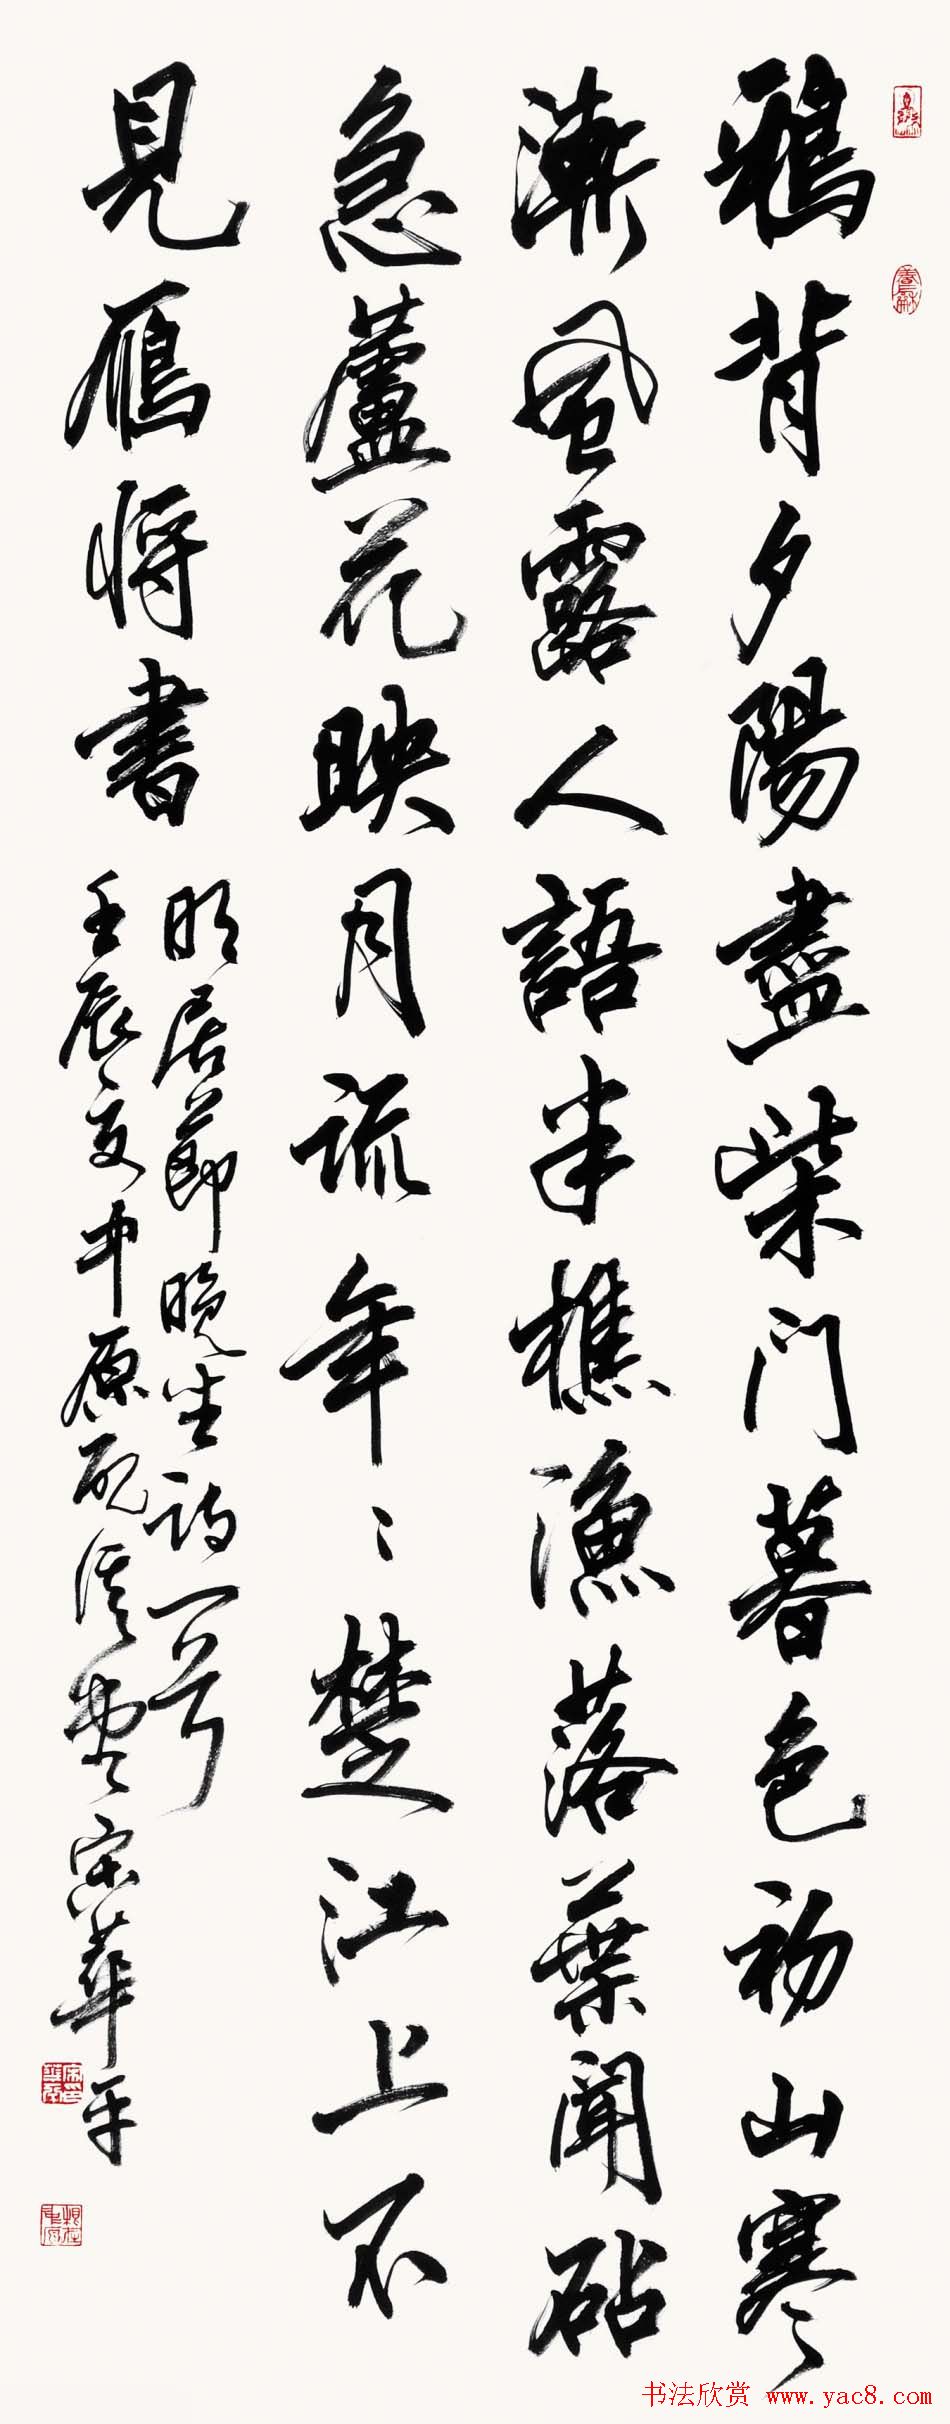 鴉背夕陽盡柴門暮色初山寒
漸風露人語半樵漁落葉聞砧
急蘆花映月疏年〻楚江上不
見鴈將書
明居節晚坐詩一首
壬辰夏中原硯堂宋華平
书法欣赏 www.yac8.com